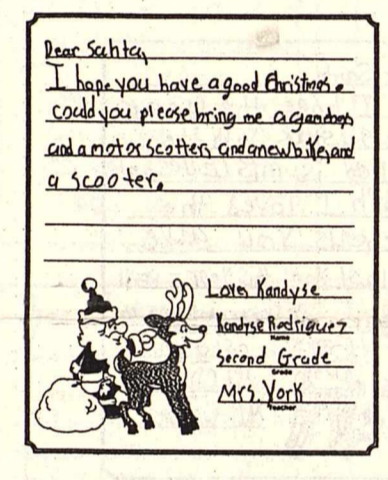 Dear Sahta,
I hope you have a good Christmas.
could you please bring me a
and a motor scotter, and a new bike, and
a scooter.
Love, Kandyse
Kandyse Rodriguez
Name
Second Grade
Grade
Mrs. York
Teacher